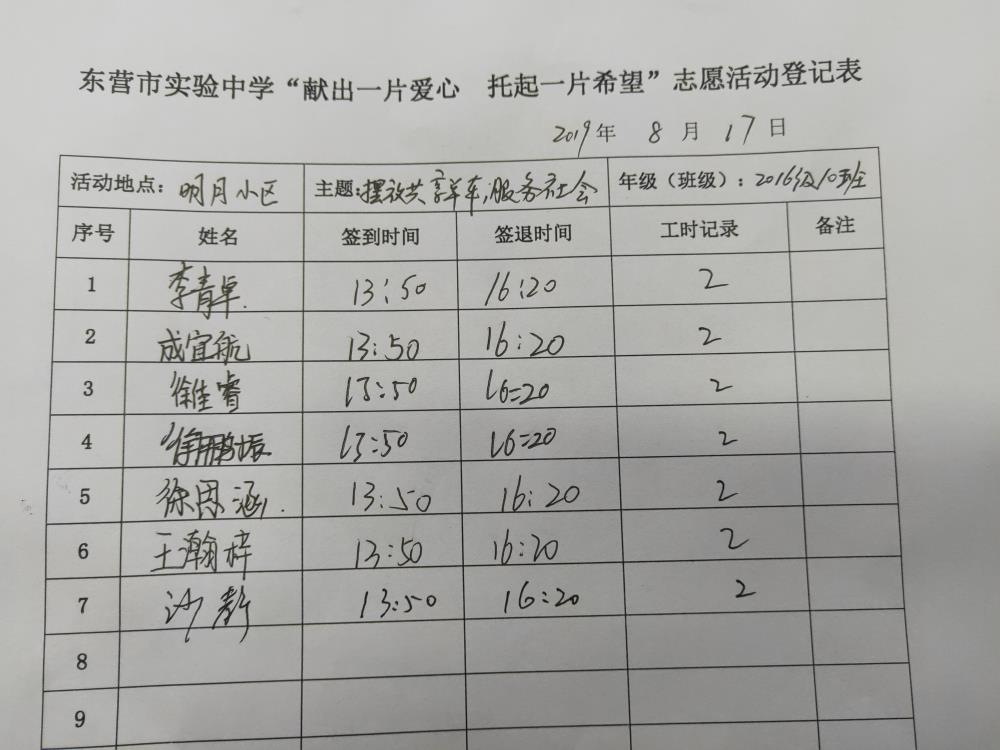 东营市实验中学“献出一片爱心 托起一片希望”志愿活动登记表
2019年 8月 17日
活动地点：明月小区 主题：摆放共享单车，服务社会 年级（班级）：2016级10班
序号 姓名 签到时间 签退时间 工时记录 备注
1 李青卓. 13:50 16:20 2
2 成宜航 13:50 16:20 2
3 徐佳睿 13:50 16:20 2
4 徐鹏振 13:50 16:20 2
5 徐思涵. 13:50 16:20 2
6 王瀚梓 13:50 16:20 2
7 沙静 13:50 16:20 2
8
9